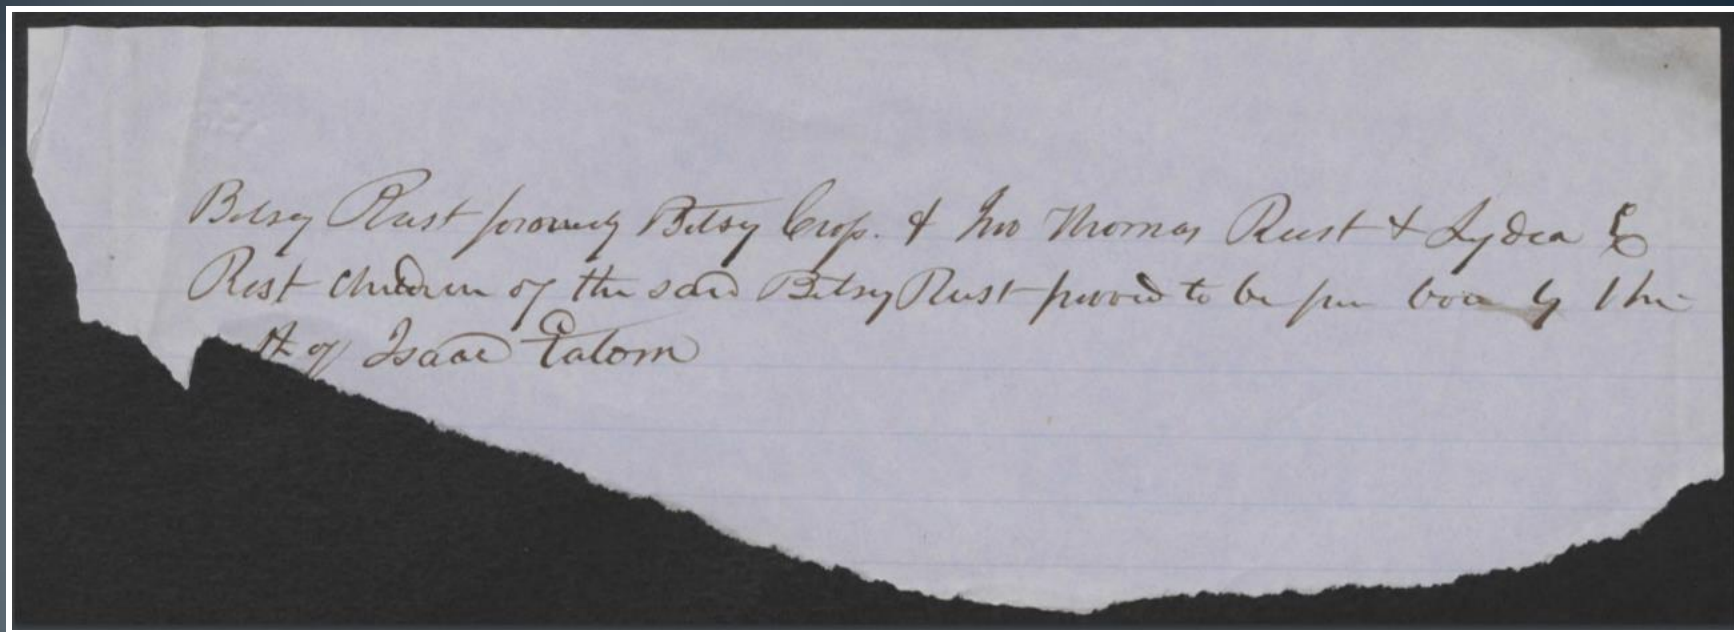 Betsy Rust formerly Betsy Crop. & Jno Thomas Rust & Lydia E
Rust children of the said Betsy Rust proved to be free born by the
th of Isaac Eatom